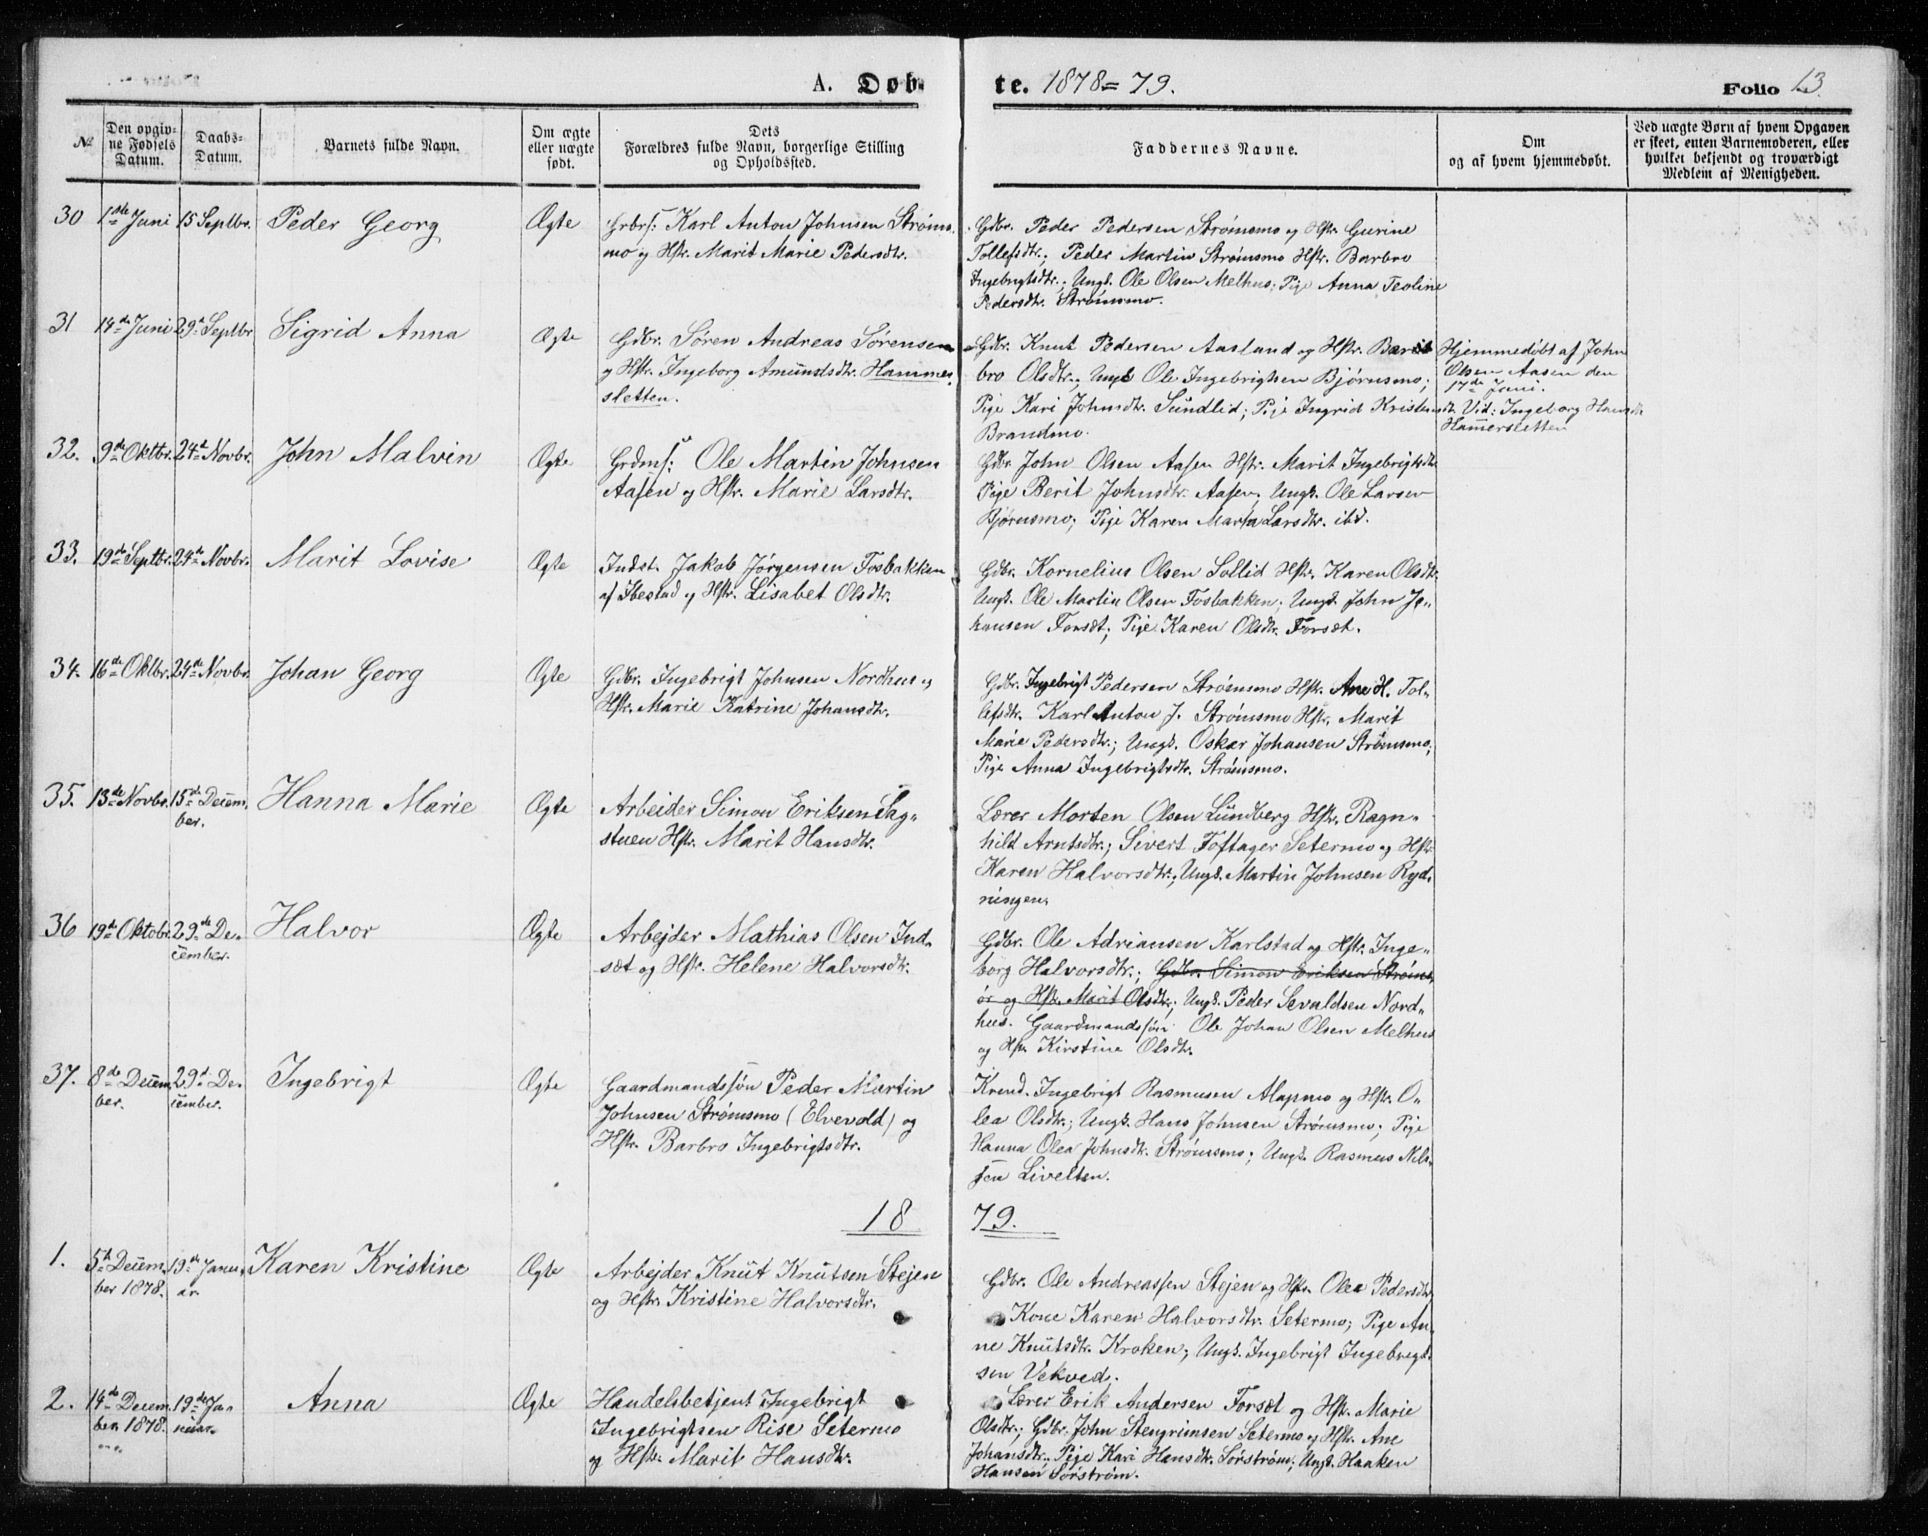 A. Døb-
te. 1878=79.
Folio 13.
№
Den opgiv-
ne Fødsels
Datum.
Daabs-
Datum.
Barnets fulde Navn.
Om ægte
eller uægte
født.
Dets
Forældres fulde Navn, borgerlige Stilling
og Opholdssted.
Faddernes Navne.
Om
og af hvem hjemmedøbt.
Ved uægte Børn af hvem Opgaven
er skeet, enten Barnemoderen, eller
hvilket bekjendt og troværdigt
Medlem af Menigheden.
30 1ste Juni 15 Septbr. Peder Georg Ægte
Grbrs: Karl Anton Johnsen Strøms-
mo og Hstr. Marit Marie Pedersdtr.
Gdbr. Peder Pedersen Strømsmo og Hstr. Gurine
Tollefsdtr.; Peder Martin Strømsmo Hstr. Barbro
Ingebrigtsdtr.; Ungk. Ole Olsen Melhus; Pige Anna Teoline
Pedersdtr. Strømsmo.
31 14de Juni 29d Septbr. Sigrid Anna Ægte
Gdbr. Søren Andreas Sørensen
og Hstr. Ingeborg Amundsdtr. Hammer-
sletten.
Gdbr. Knut Pedersen Aasland og Hstr. Bar
bro Olsdtr.; Ungk. Ole Ingebrigtsen Bjørnsmo;
Pige Kari Johnsdtr. Sundlid; Pige Ingrid Kristensdtr.
Brandmo.
Hjemmedøbt af John
Olsen Aasen den
17de Juni.
Vid: Ingeborg Hansdtr.
Hamersletten
32. 9de Oktbr. 24d Novbr. John Malvin Ægte
Grdms: Ole Martin Johnsen
Aasen og Hstr. Marie Larsdtr.
Gdbr. John Olsen Aasen Hstr. Marit Ingebrigtsdtr.
Pige Berit Johnsdtr. Aasen; Ungk. Ole Larsen
Bjørnsmo; Pige Karen Marta Larsdtr. ibd.
33. 19de Septbr. 24de Novbr. Marit Lovise Ægte
Indst. Jakob Jörgensen Fosbakken
af Ibestad og Hstr. Lisabet Olsdtr.
Gdbr. Kornelius Olsen Sollid Hstr. Karen Olsdtr.
Ungk. Ole Martin Olsen Fosbakken; Ungk. John Jo-
hansen Forsæt; Pige Karen Olsdtr. Forsæt.
34. 16de Oktbr. 24de Novbr. Johan Georg Ægte
Gdbr. Ingebrigt Johnsen Nordhus og
Hstr. Marie Katrine Johansdtr.
Gdbr. Ingebrigt Pedersen Strømsmo Hstr. Ane H. Tol-
lefsdtr. Karl Anton J. Strømsmo Hstr. Marit
Marie Pedersdtr.; Ungk. Oskar Johansen Strømsmo;
Pige Anna Ingebrigtsdtr. Strømsmo.
35. 13de Novbr. 15de Decem- Hanna Marie Ægte
ber.
Arbeider Simon Eriksen Skog-
stuen Hstr. Marit Hansdtr.
Lærer Morten Olsen Lundberg Hstr. Ragn-
hild Arntsdtr.; Sivert Toftager Setermo og Hstr.
Karen Halvorsdtr.; Ungk. Martin Johnsen Ryd-
ningen.
36 19de Oktobr. 29de De- Halvor Ægte
cember.
Arbejder Mathias Olsen Ind-
sæt og Hstr. Helene Halvorsdtr.
Gdbr. Ole Adriansen Karlstad og Hstr. Inge-
borg Halvorsdtr.; Gdbr. Simon Eriksen Strøms-
ör og Hstr. Marit Olsdtr.; Ungk. Peder Sevaldsen Nord-
hus. Gaardmandssøn Ole Johan Olsen Melhus
og Hstr. Kirstine Olsdtr.
37. 8de Decem- 29d. De- Ingebrigt Ægte
ber. cember.
Gaardmandssøn Peder Martin
Johnsen Strømsmo (Elvevold) og
Hstr. Barbro Ingebrigtsdtr.
Ingebrigt Rasmusen Alapmo og Hstr. O-
lea Olsdtr.; Ungk. Hans Johnsen Strømsmo; Pige
Hanna Olea Johnsdtr. Strømsmo; Ungk. Rasmus Nils-
sen Livelten.
18 79.
1. 5te Decem- 19de Janu- Karen Kristine Ægte
ber 1878. ar.
Arbejder Knut Knutsen Stejen
og Hstr. Kristine Halvorsdtr.
Gdbr. Ole Andreassen Stejen og Hstr. Olea Pedersdtr.
Kone Karen Halvorsdtr. Setermo; Pige An-
ne Knutsdtr. Kroken; Ungk. Ingebrigt Ingebrigt-
sen Vekved.
2. 14de Decem- 19de Ja- Anna Ægte
ber 1878. nuar.
Handelsbetjent Ingebrigt
Ingebrigtsen Rise Setermo
og Hstr. Marit Hansdtr.
Lærer Erik Andersen Forsæt og Hstr. Marie
Olsdtr.; Gdbr. John Stengrimsen Setermo og Hstr. Ane
Johansdtr.; Pige Kari Hansdtr. Sørstrøm; Ungk. Haaken
Hansen Sørstrøm.